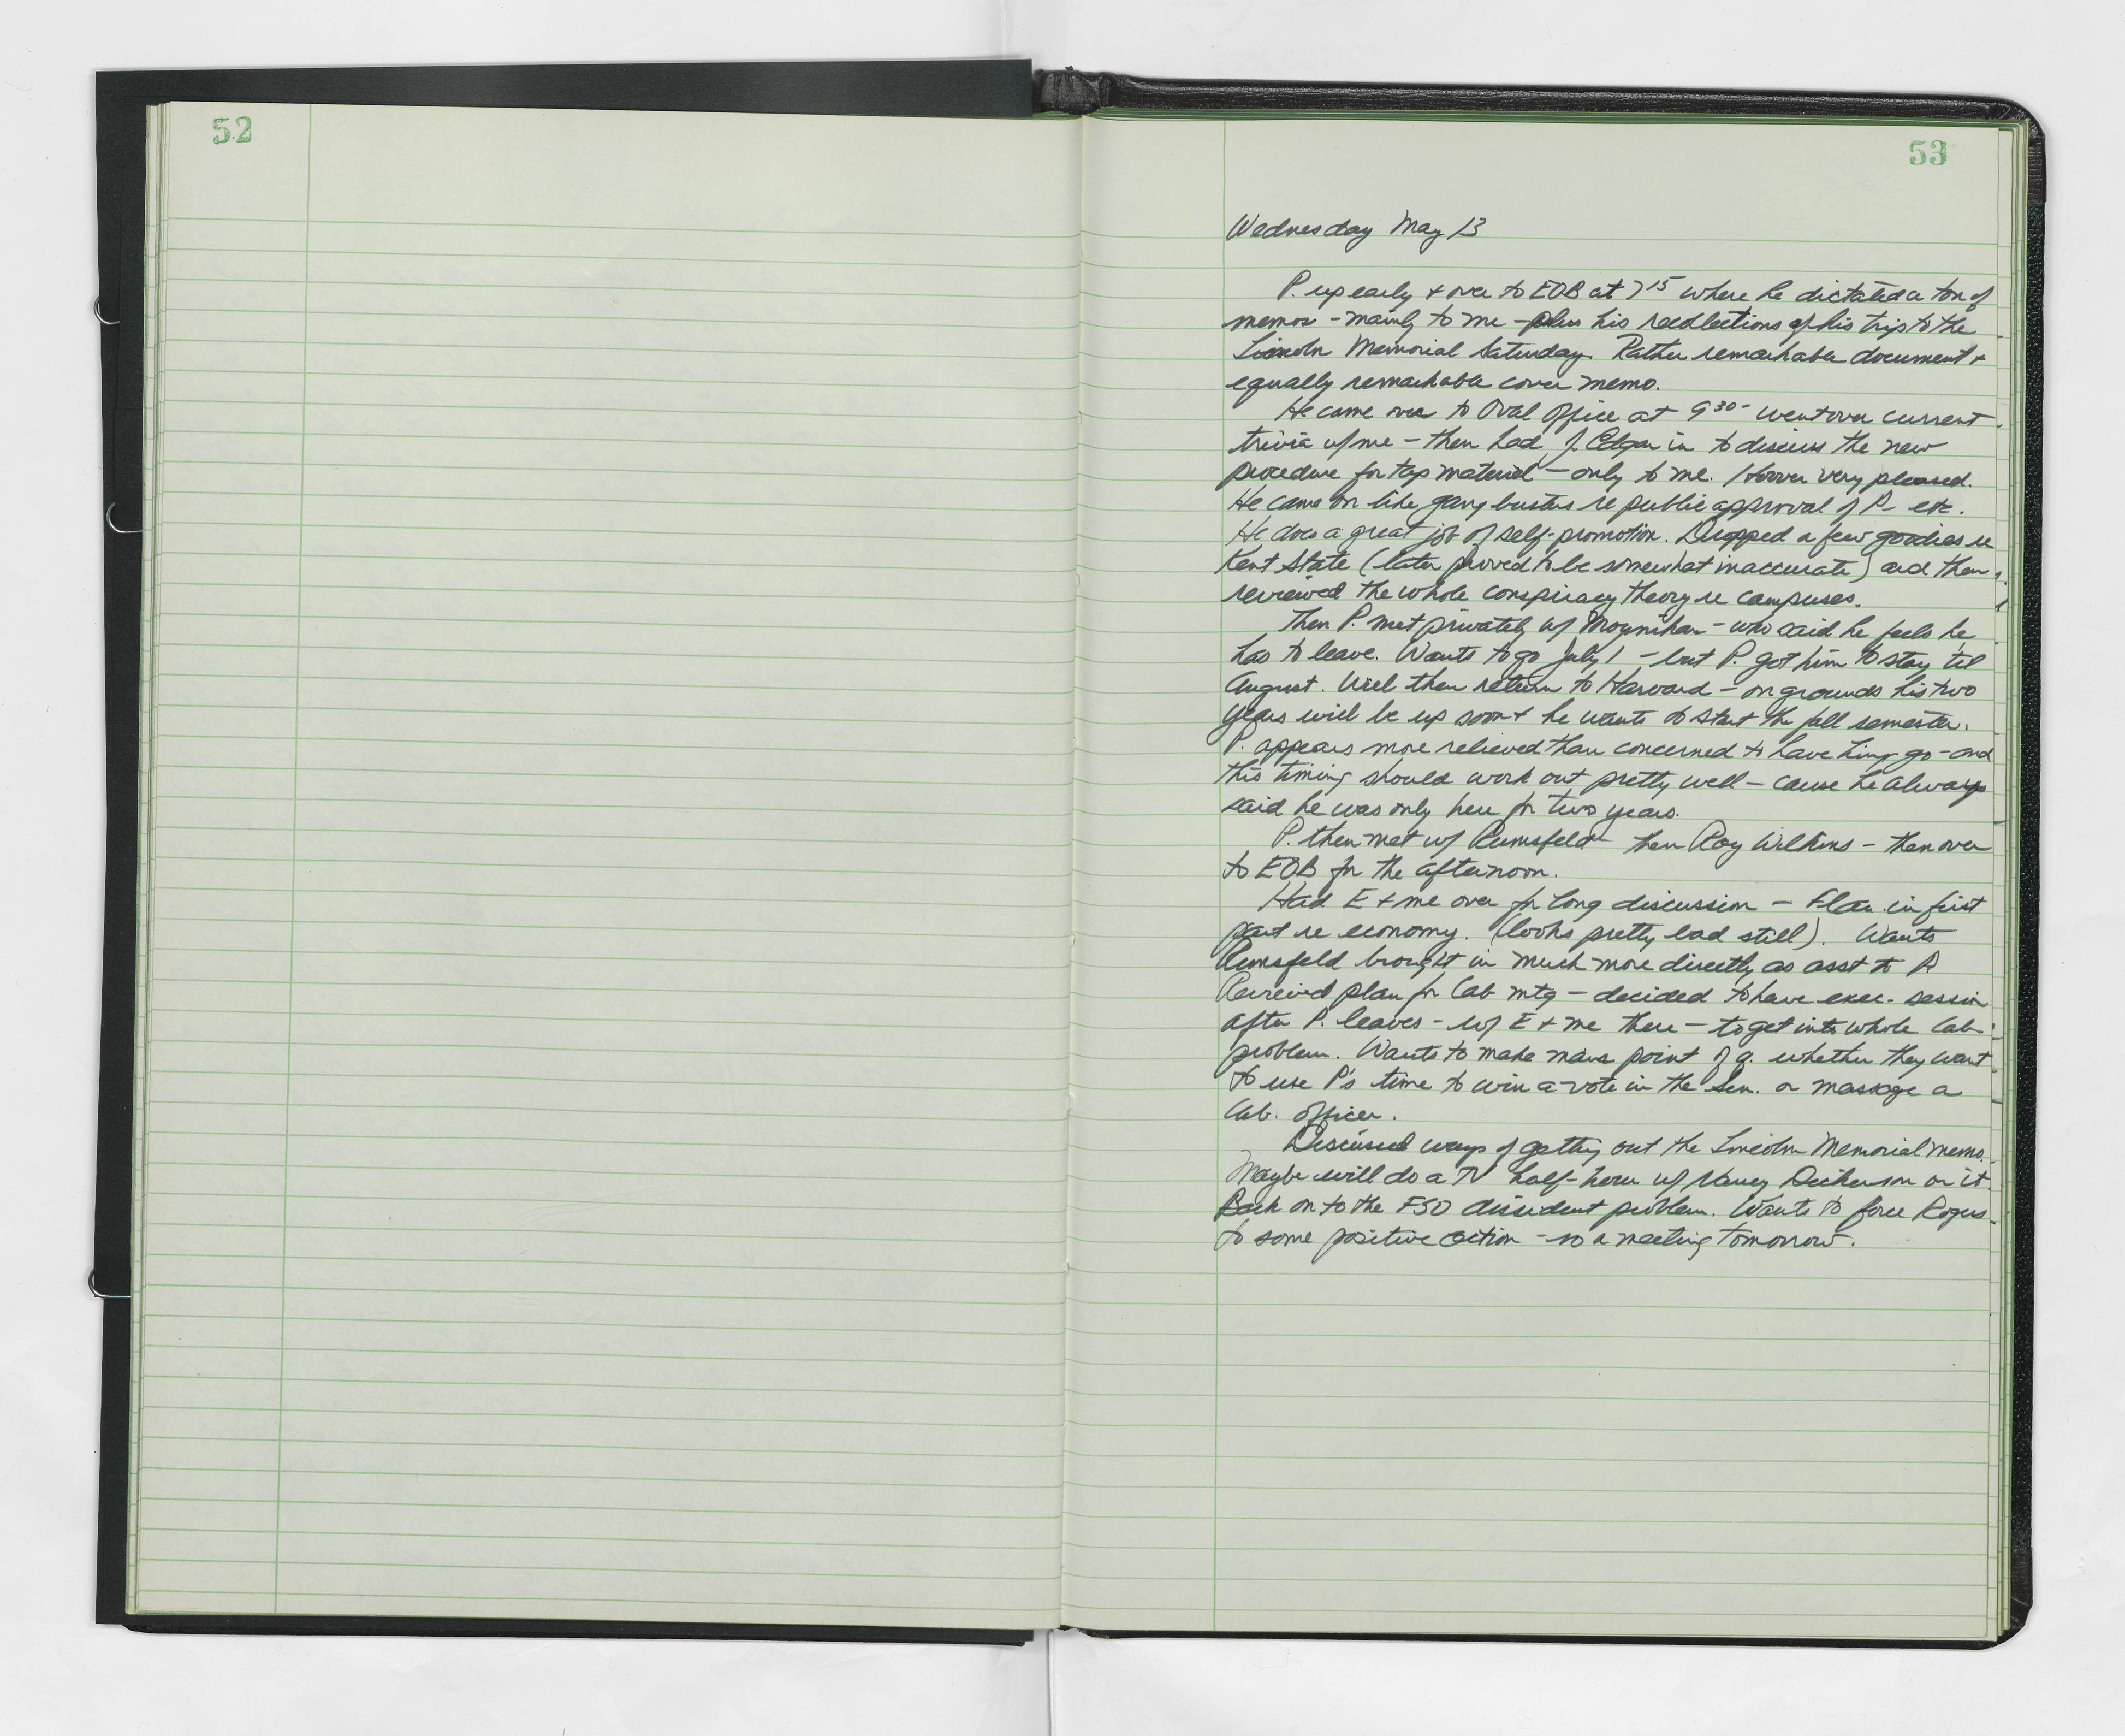 52
53
Wednesday May 13
P. up early + over to EOB at 7 15 where he dictated a ton of
memos - mainly to me - plus his recollections of his trip to the
Lincoln Memorial Saturday. Rather remarkable document +
equally remarkable cover memo.
He came over to Oval Office at 9 30 - went over current
trivia w/ me - then had J. Edgar in to discuss the new
procedure for tap material - only to me. Hoover very pleased.
He came on like gang busters re public approval of P - etc.
He does a great job of self-promotion. Dropped a few goodies re
Kent State (later proved to be somewhat inaccurate) and then
reviewed the whole conspiracy theory re campuses.
Then P. met privately w/ Moynihan - who said he feels he
has to leave. Wants to go July 1 - but P. got him to stay til
August. Will then return to Harvard - on grounds his two
years will be up soon + he wants to start the fall semester.
P. appears more relieved than concerned to have him go - and
this timing should work out pretty well - cause he always
said he was only here for two years.
P. then met w/ Rumsfeld - then Roy Wilkins - then over
to EOB for the afternoon.
Had E + me over for long discussion - Flan. in first
part re economy. (looks pretty bad still). Wants
Rumsfeld brought in much more directly as asst to P.
Reviewed plan for Cab mtg - decided to have exec. session
after P. leaves - w/ E + me there - to get into whole Cab.
problem. Wants to make main point of q. whether they want
to use P's time to win a vote in the Sen. or massage a
Cab. officer.
Discussed ways of getting out the Lincoln Memorial memo.
Maybe will do a TV half-hour w/ Nancy Dickerson on it.
Back on to the FSO dissident problem. Wants to force Rogers
to some positive action - so a meeting tomorrow.